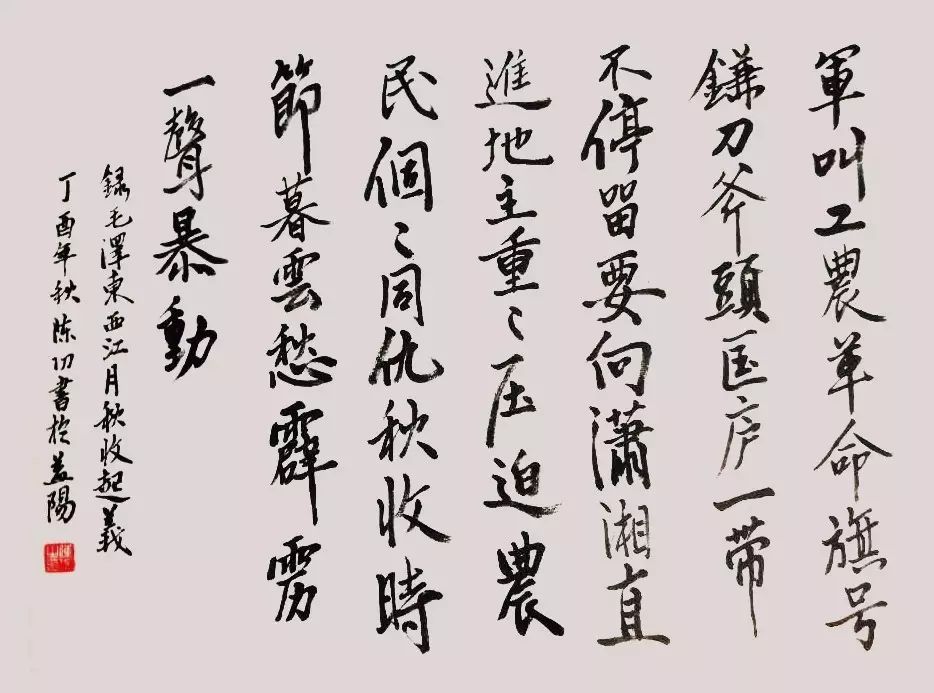 軍叫工農革命旗号
鎌刀斧頭匡庐一带
不停留要向瀟湘直
進地主重〻压迫農
民個〻同仇秋收時
節暮雲愁霹雳
一聲暴動
録毛澤東西江月秋收起義
丁酉年秋陈功書於益陽